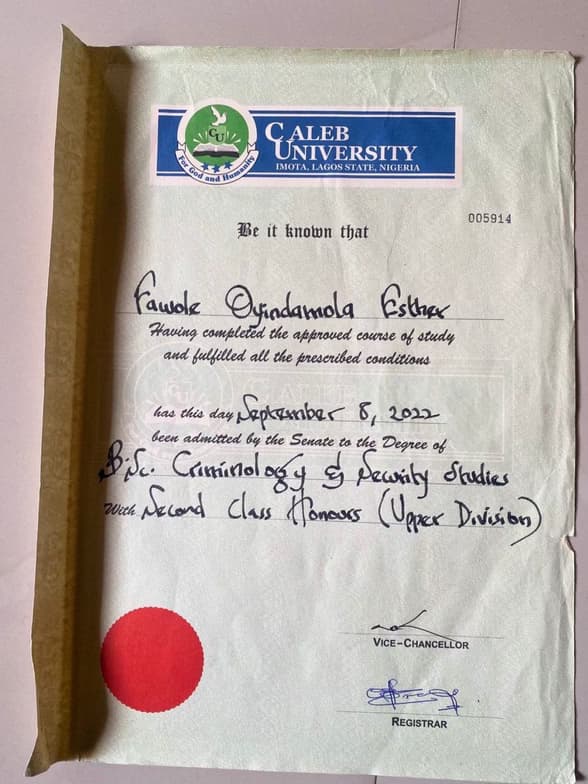 CALEB
UNIVERSITY
IMOTA, LAGOS STATE, NIGERIA
CU
For God and Humanity
005914
Be it known that
Fawole Oyindamola Esther
Having completed the approved course of study
and fulfilled all the prescribed conditions
has this day September 8, 2022
been admitted by the Senate to the Degree of
B.Sc. Criminology & Security Studies
With Second Class Honours (Upper Division)
VICE-CHANCELLOR
REGISTRAR